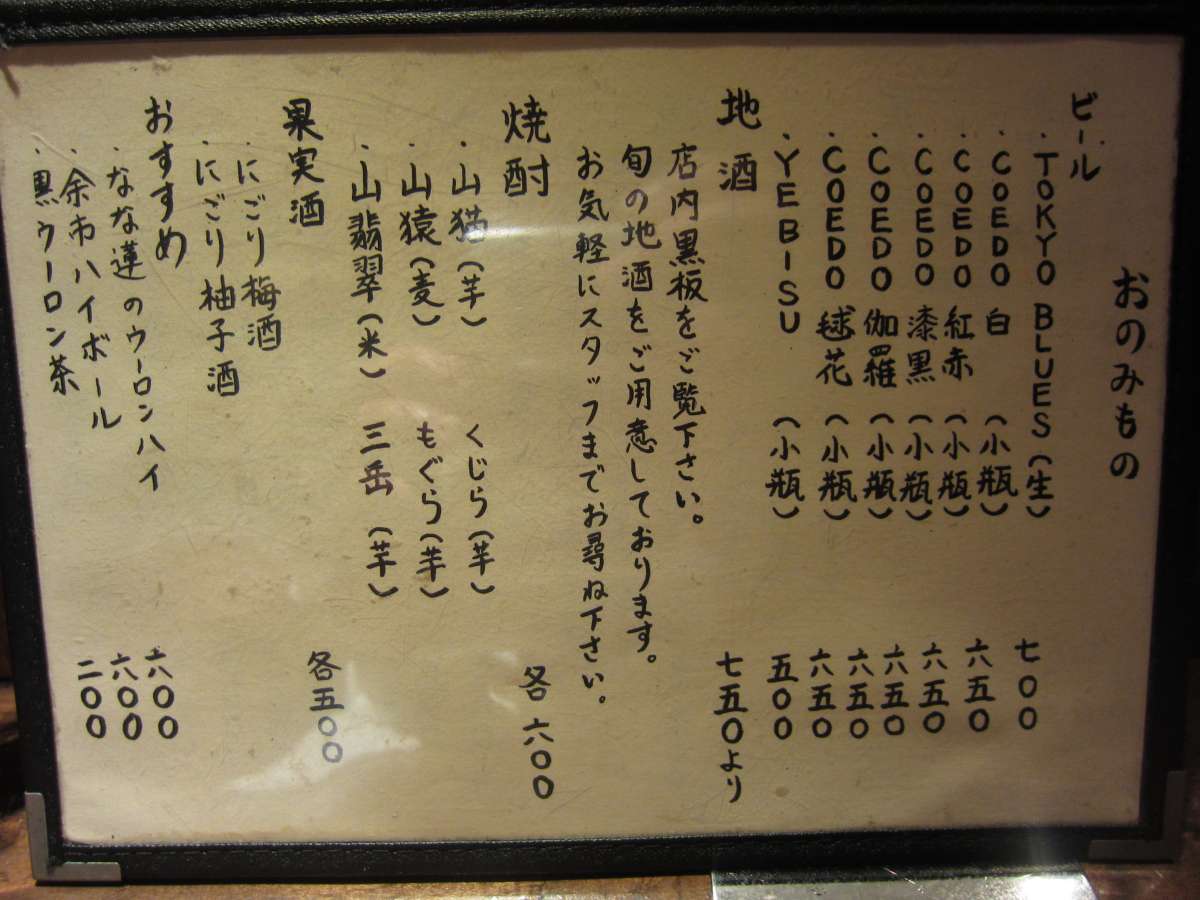 おのみもの
ビール
・TOKYO BLUES(生) 七〇〇
・COEDO 白 (小瓶) 六五〇
COEDO 紅赤 (小瓶) 六五〇
COEDO 漆黒 (小瓶) 六五〇
COEDO 伽羅 (小瓶) 六五〇
COEDO 毬花 (小瓶) 六五〇
・YEBISU (小瓶) 五〇〇
地酒 七五〇より
店内黒板をご覧下さい。
旬の地酒をご用意しております。
お気軽にスタッフまでお尋ね下さい。
焼酎 各六〇〇
・山猫(芋) くじら(芋)
・山猿(麦) もぐら(芋)
・山翡翠(米) 三岳(芋)
果実酒 各五〇〇
・にごり梅酒
・にごり柚子酒
おすすめ
・なな蓮のウーロンハイ 六〇〇
・余市ハイボール 六〇〇
・黒ウーロン茶 二〇〇